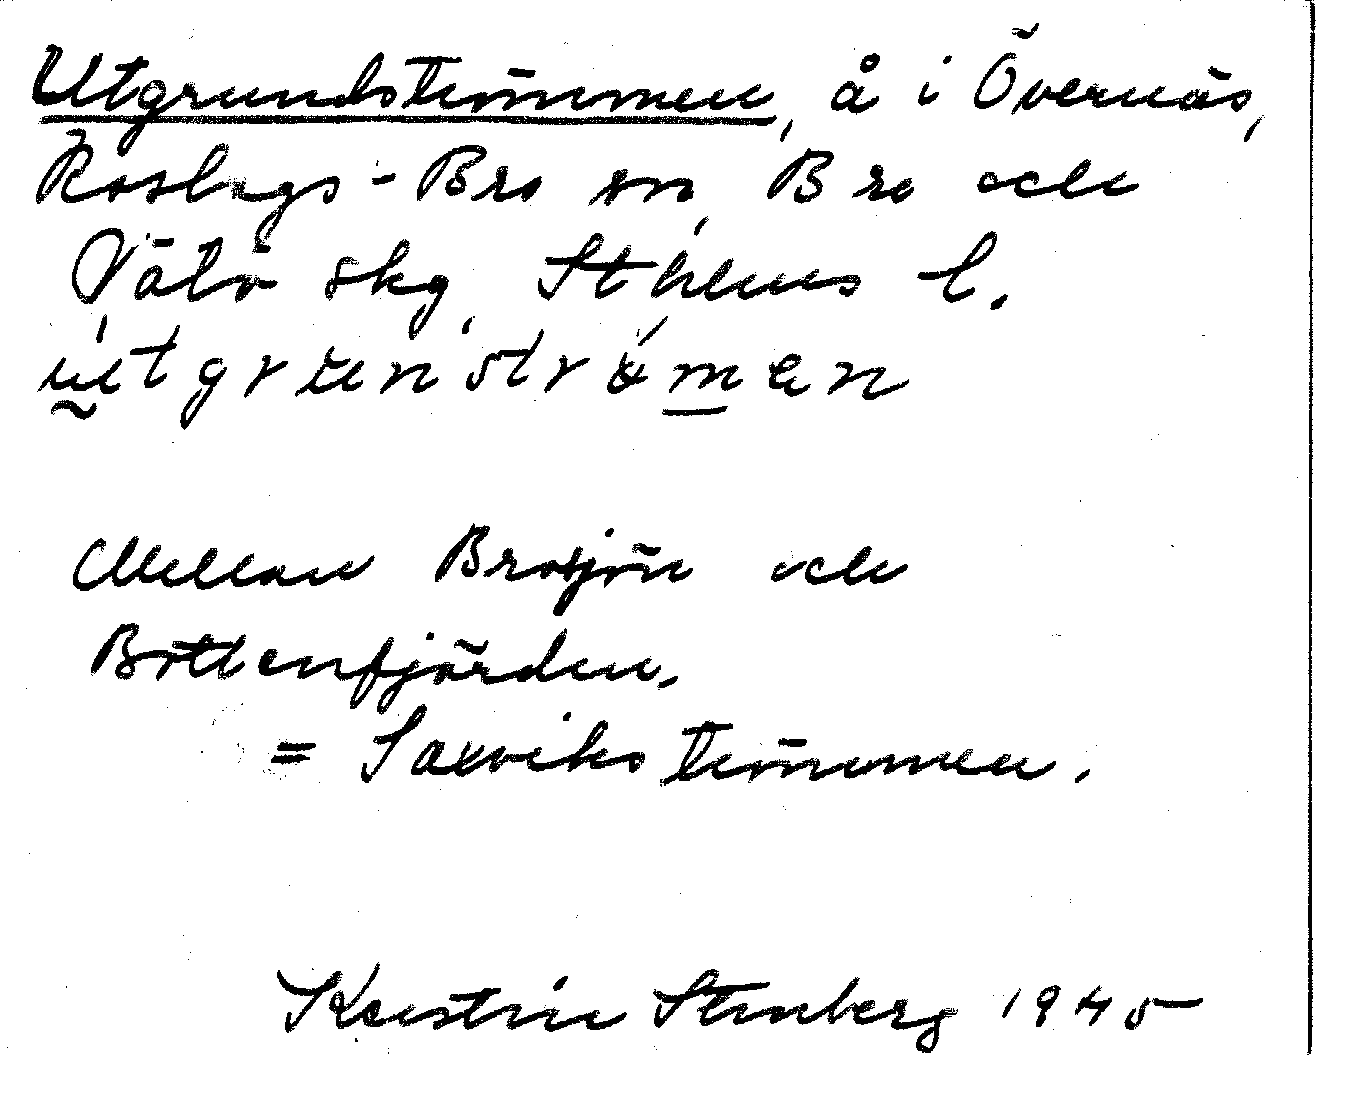 Utgrundströmmen, å i Övernäs,
Roslags-Bro sn, Bro och
Vätö skg, Sthlms l.
Mellan Brosjön och
Bottenfjärden.
= Saxvikströmmen.
Kerstin Stenberg 1945